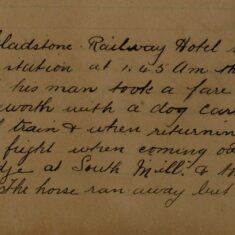 Gladstone Railway Hotel
station at 1.45 Am th
his man took a fare
worth with a dog car
train & when returnin
fright when coming ou
dge at South Mill. & th
The horse ran away but